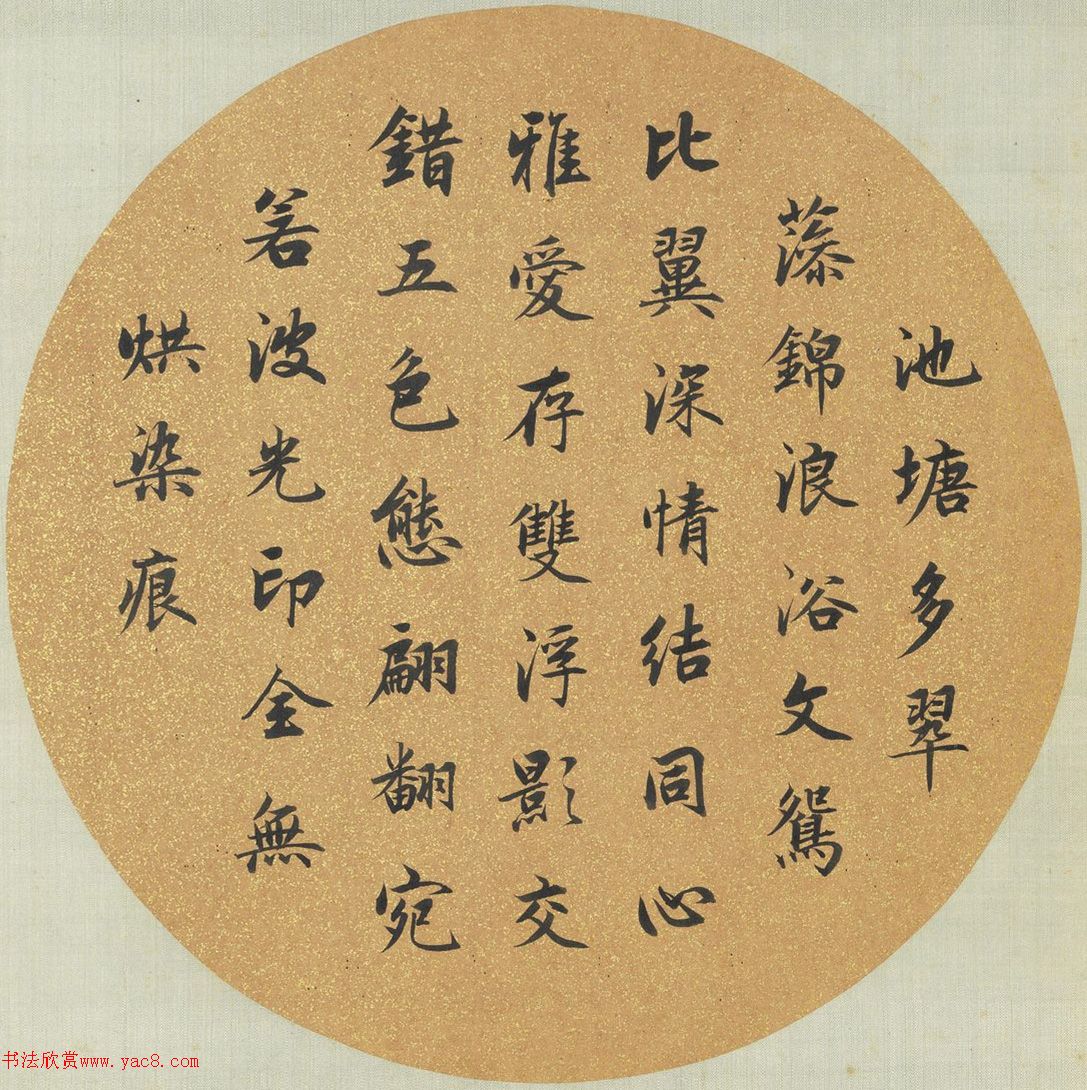 池塘多翠
藻錦浪浴文鴛
比翼深情結同心
雅愛存雙浮影交
錯五色態翩翻宛
若波光印全無
烘染痕
书法欣赏www.yac8.com